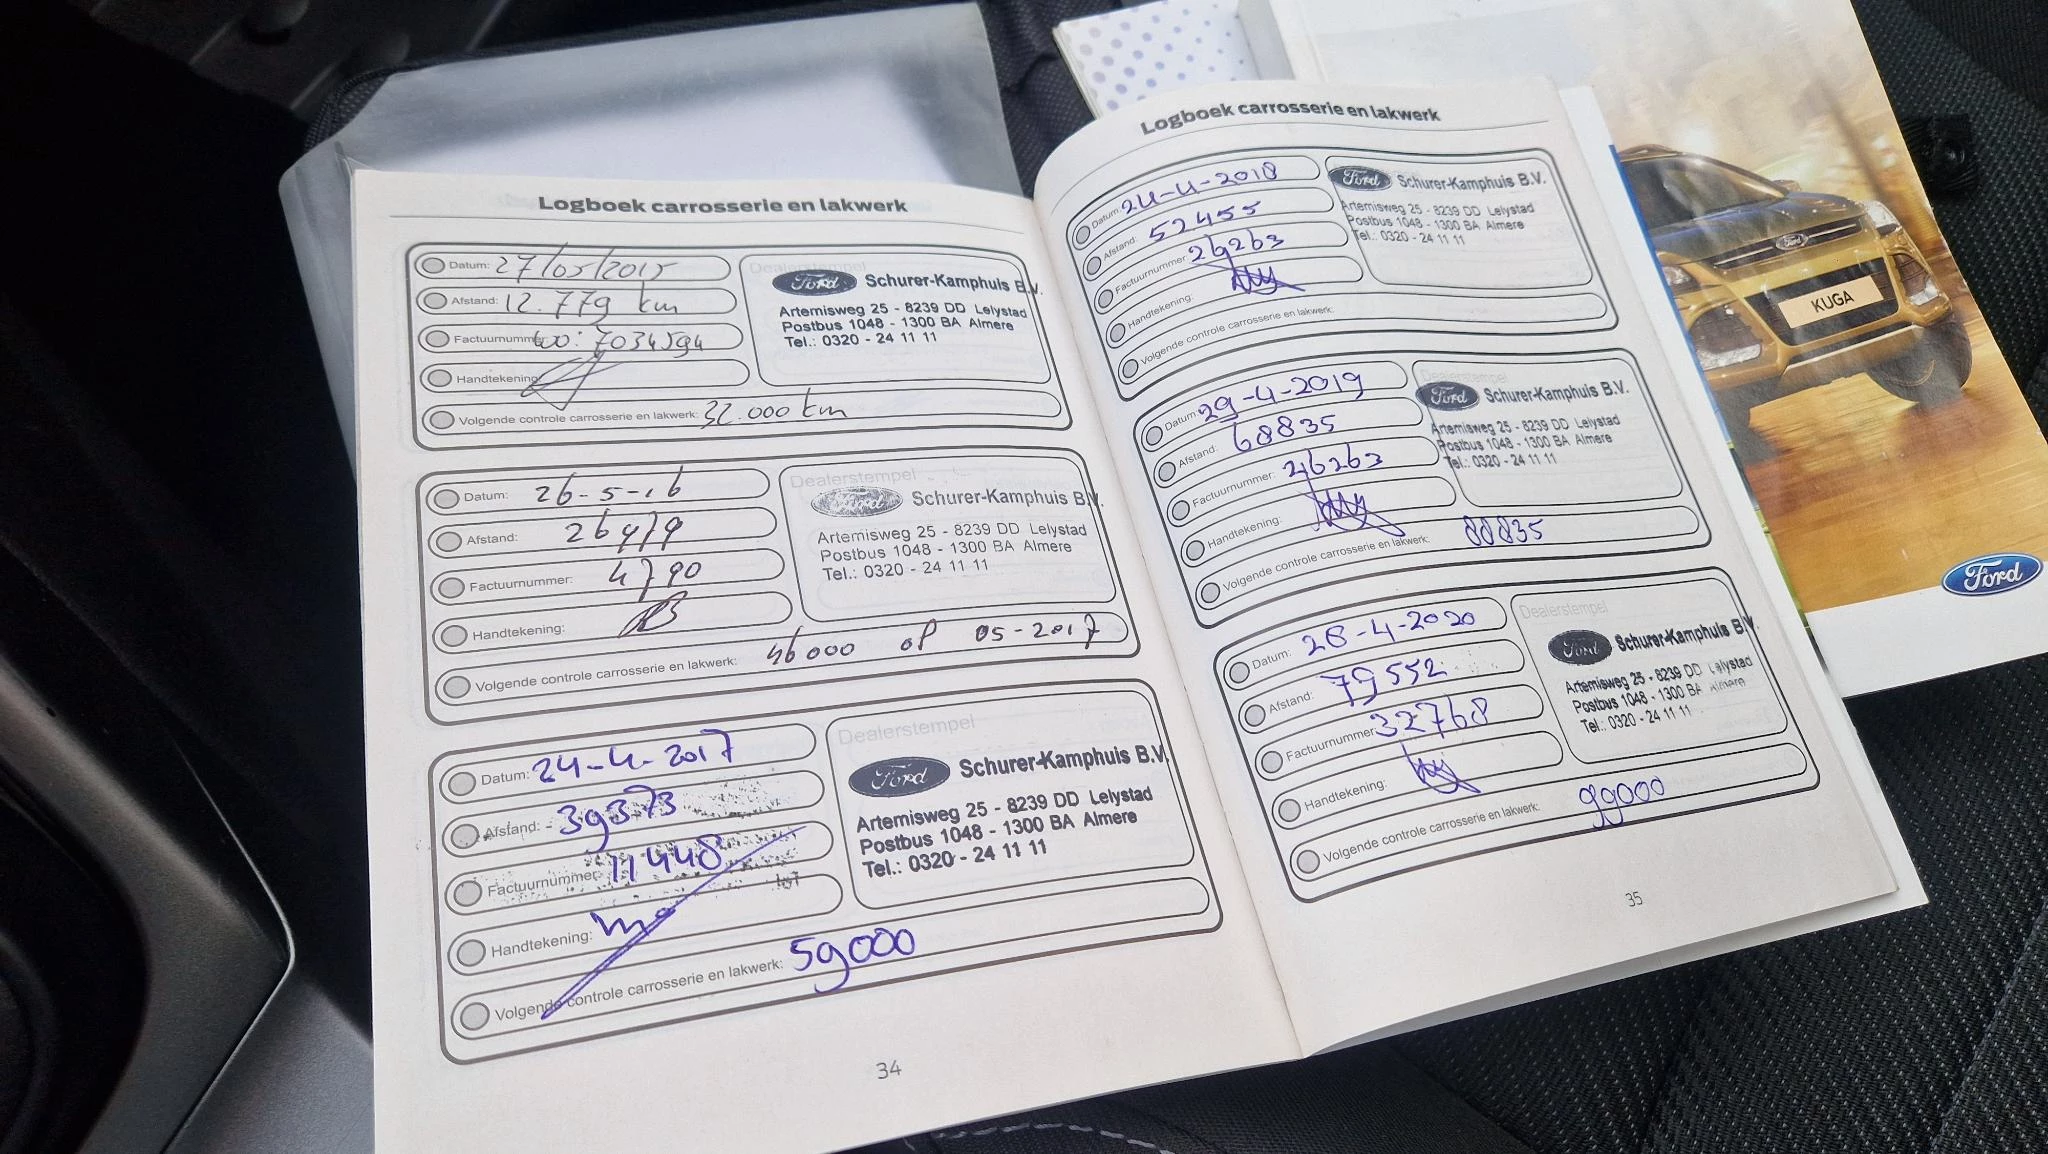 Logboek carrosserie en lakwerk
Datum: 27/05/2015
Afstand: 12.779 km
Factuurnummer: WO: 7034594
Handtekening:
Volgende controle carrosserie en lakwerk: 32.000 km
Dealerstempel
Ford Schurer-Kamphuis B.V.
Artemisweg 25 - 8239 DD Lelystad
Postbus 1048 - 1300 BA Almere
Tel.: 0320 - 24 11 11
Datum: 26-5-16
Afstand: 26979
Factuurnummer: 4790
Handtekening:
Volgende controle carrosserie en lakwerk: 46000 of 05-2017
Dealerstempel
Ford Schurer-Kamphuis B.V.
Artemisweg 25 - 8239 DD Lelystad
Postbus 1048 - 1300 BA Almere
Tel.: 0320 - 24 11 11
Datum: 24-4-2017
Afstand: 39373
Factuurnummer: 11448
Handtekening:
Volgende controle carrosserie en lakwerk: 59000
Dealerstempel
Ford Schurer-Kamphuis B.V.
Artemisweg 25 - 8239 DD Lelystad
Postbus 1048 - 1300 BA Almere
Tel.: 0320 - 24 11 11
34
Logboek carrosserie en lakwerk
Datum: 24-4-2018
Afstand: 52455
Factuurnummer: 26263
Handtekening:
Volgende controle carrosserie en lakwerk:
Ford Schurer-Kamphuis B.V.
Artemisweg 25 - 8239 DD Lelystad
Postbus 1048 - 1300 BA Almere
Tel.: 0320 - 24 11 11
Datum: 29-4-2019
Afstand: 68835
Factuurnummer: 26263
Handtekening:
Volgende controle carrosserie en lakwerk: 88835
Dealerstempel
Ford Schurer-Kamphuis B.V.
Artemisweg 25 - 8239 DD Lelystad
Postbus 1048 - 1300 BA Almere
Tel.: 0320 - 24 11 11
Datum: 28-4-2020
Afstand: 79552
Factuurnummer: 32768
Handtekening:
Volgende controle carrosserie en lakwerk: 99000
Dealerstempel
Ford Schurer-Kamphuis B.V.
Artemisweg 25 - 8239 DD Lelystad
Postbus 1048 - 1300 BA Almere
Tel.: 0320 - 24 11 11
35
Ford
KUGA
Ford